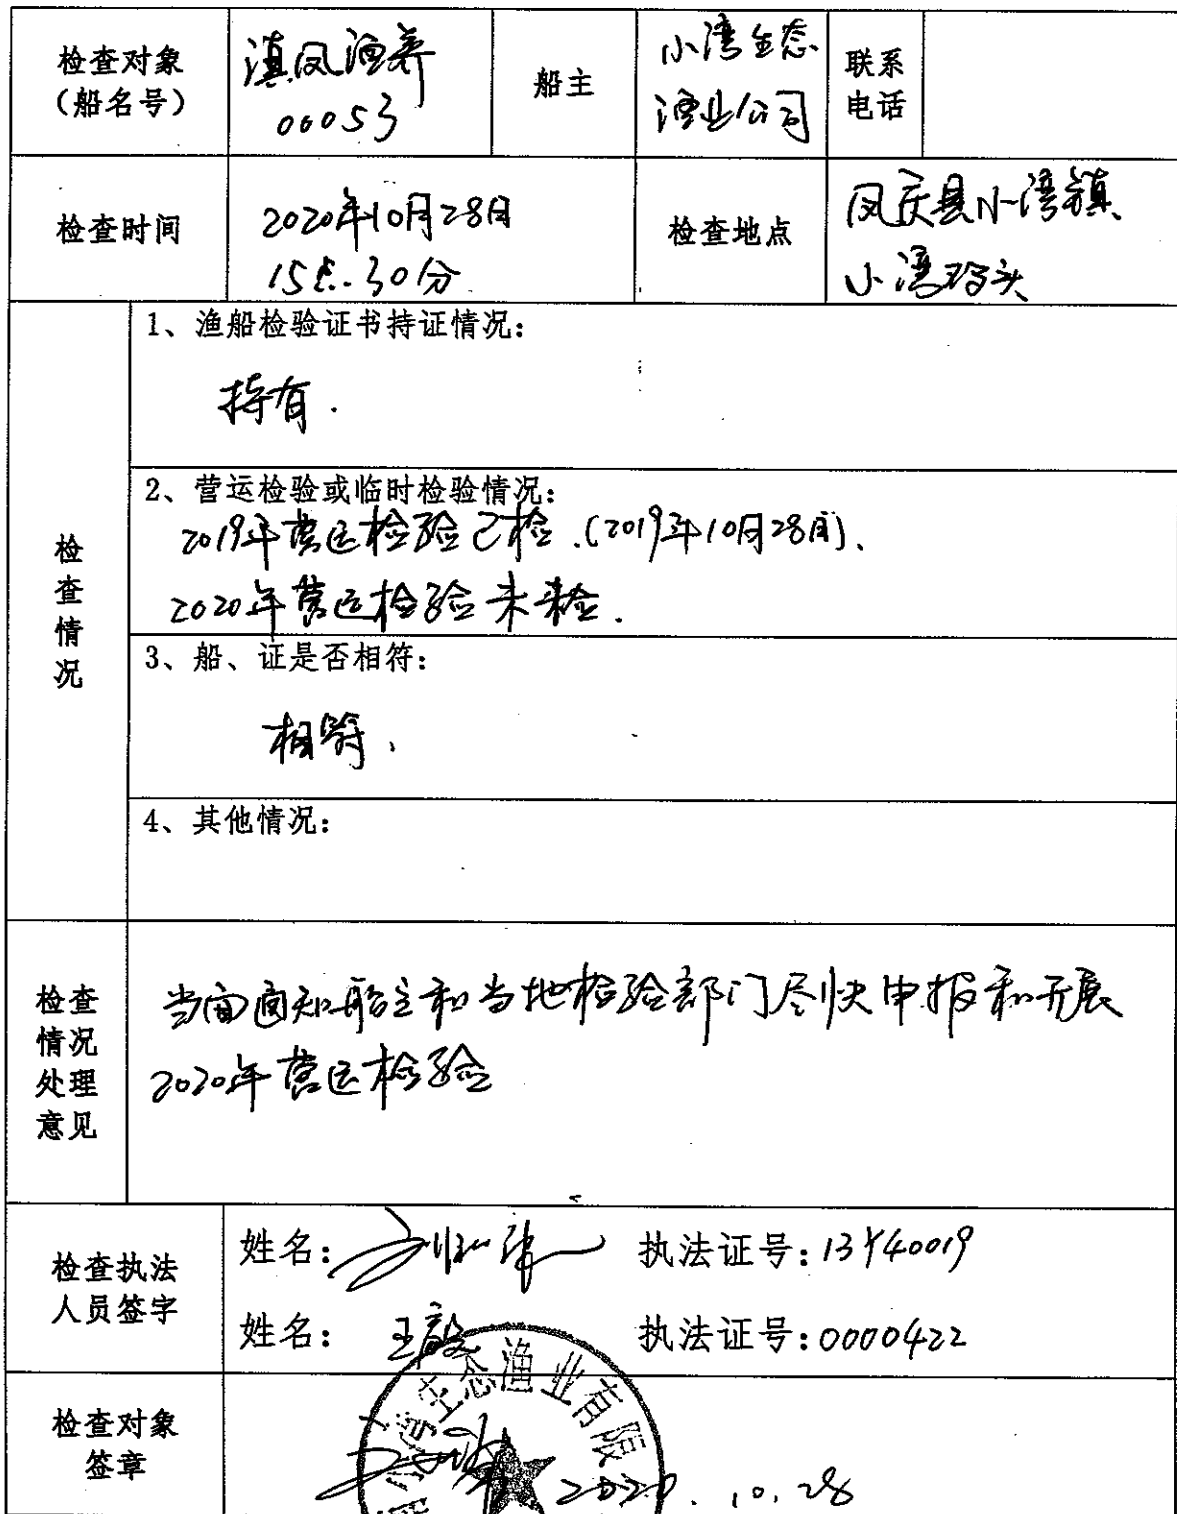 检查对象
（船名号）
滇凤渔养
00053
船主
小湾生态
渔业公司
联系
电话
检查时间
2020年10月28日
15点30分
检查地点
凤庆县小湾镇
小湾码头
检查情况
1、渔船检验证书持证情况：
持有.
2、营运检验或临时检验情况：
2019年营运检验已检.(2019年10月28日).
2020年营运检验未检.
3、船、证是否相符：
相符.
4、其他情况：
检查
情况
处理
意见
当面通知船主和当地检验部门尽快申报和开展
2020年营运检验
检查执法
人员签字
姓名：
执法证号：13Y40019
姓名：王毅
执法证号：0000422
检查对象
签章
小湾生态渔业有限
2020.10.28